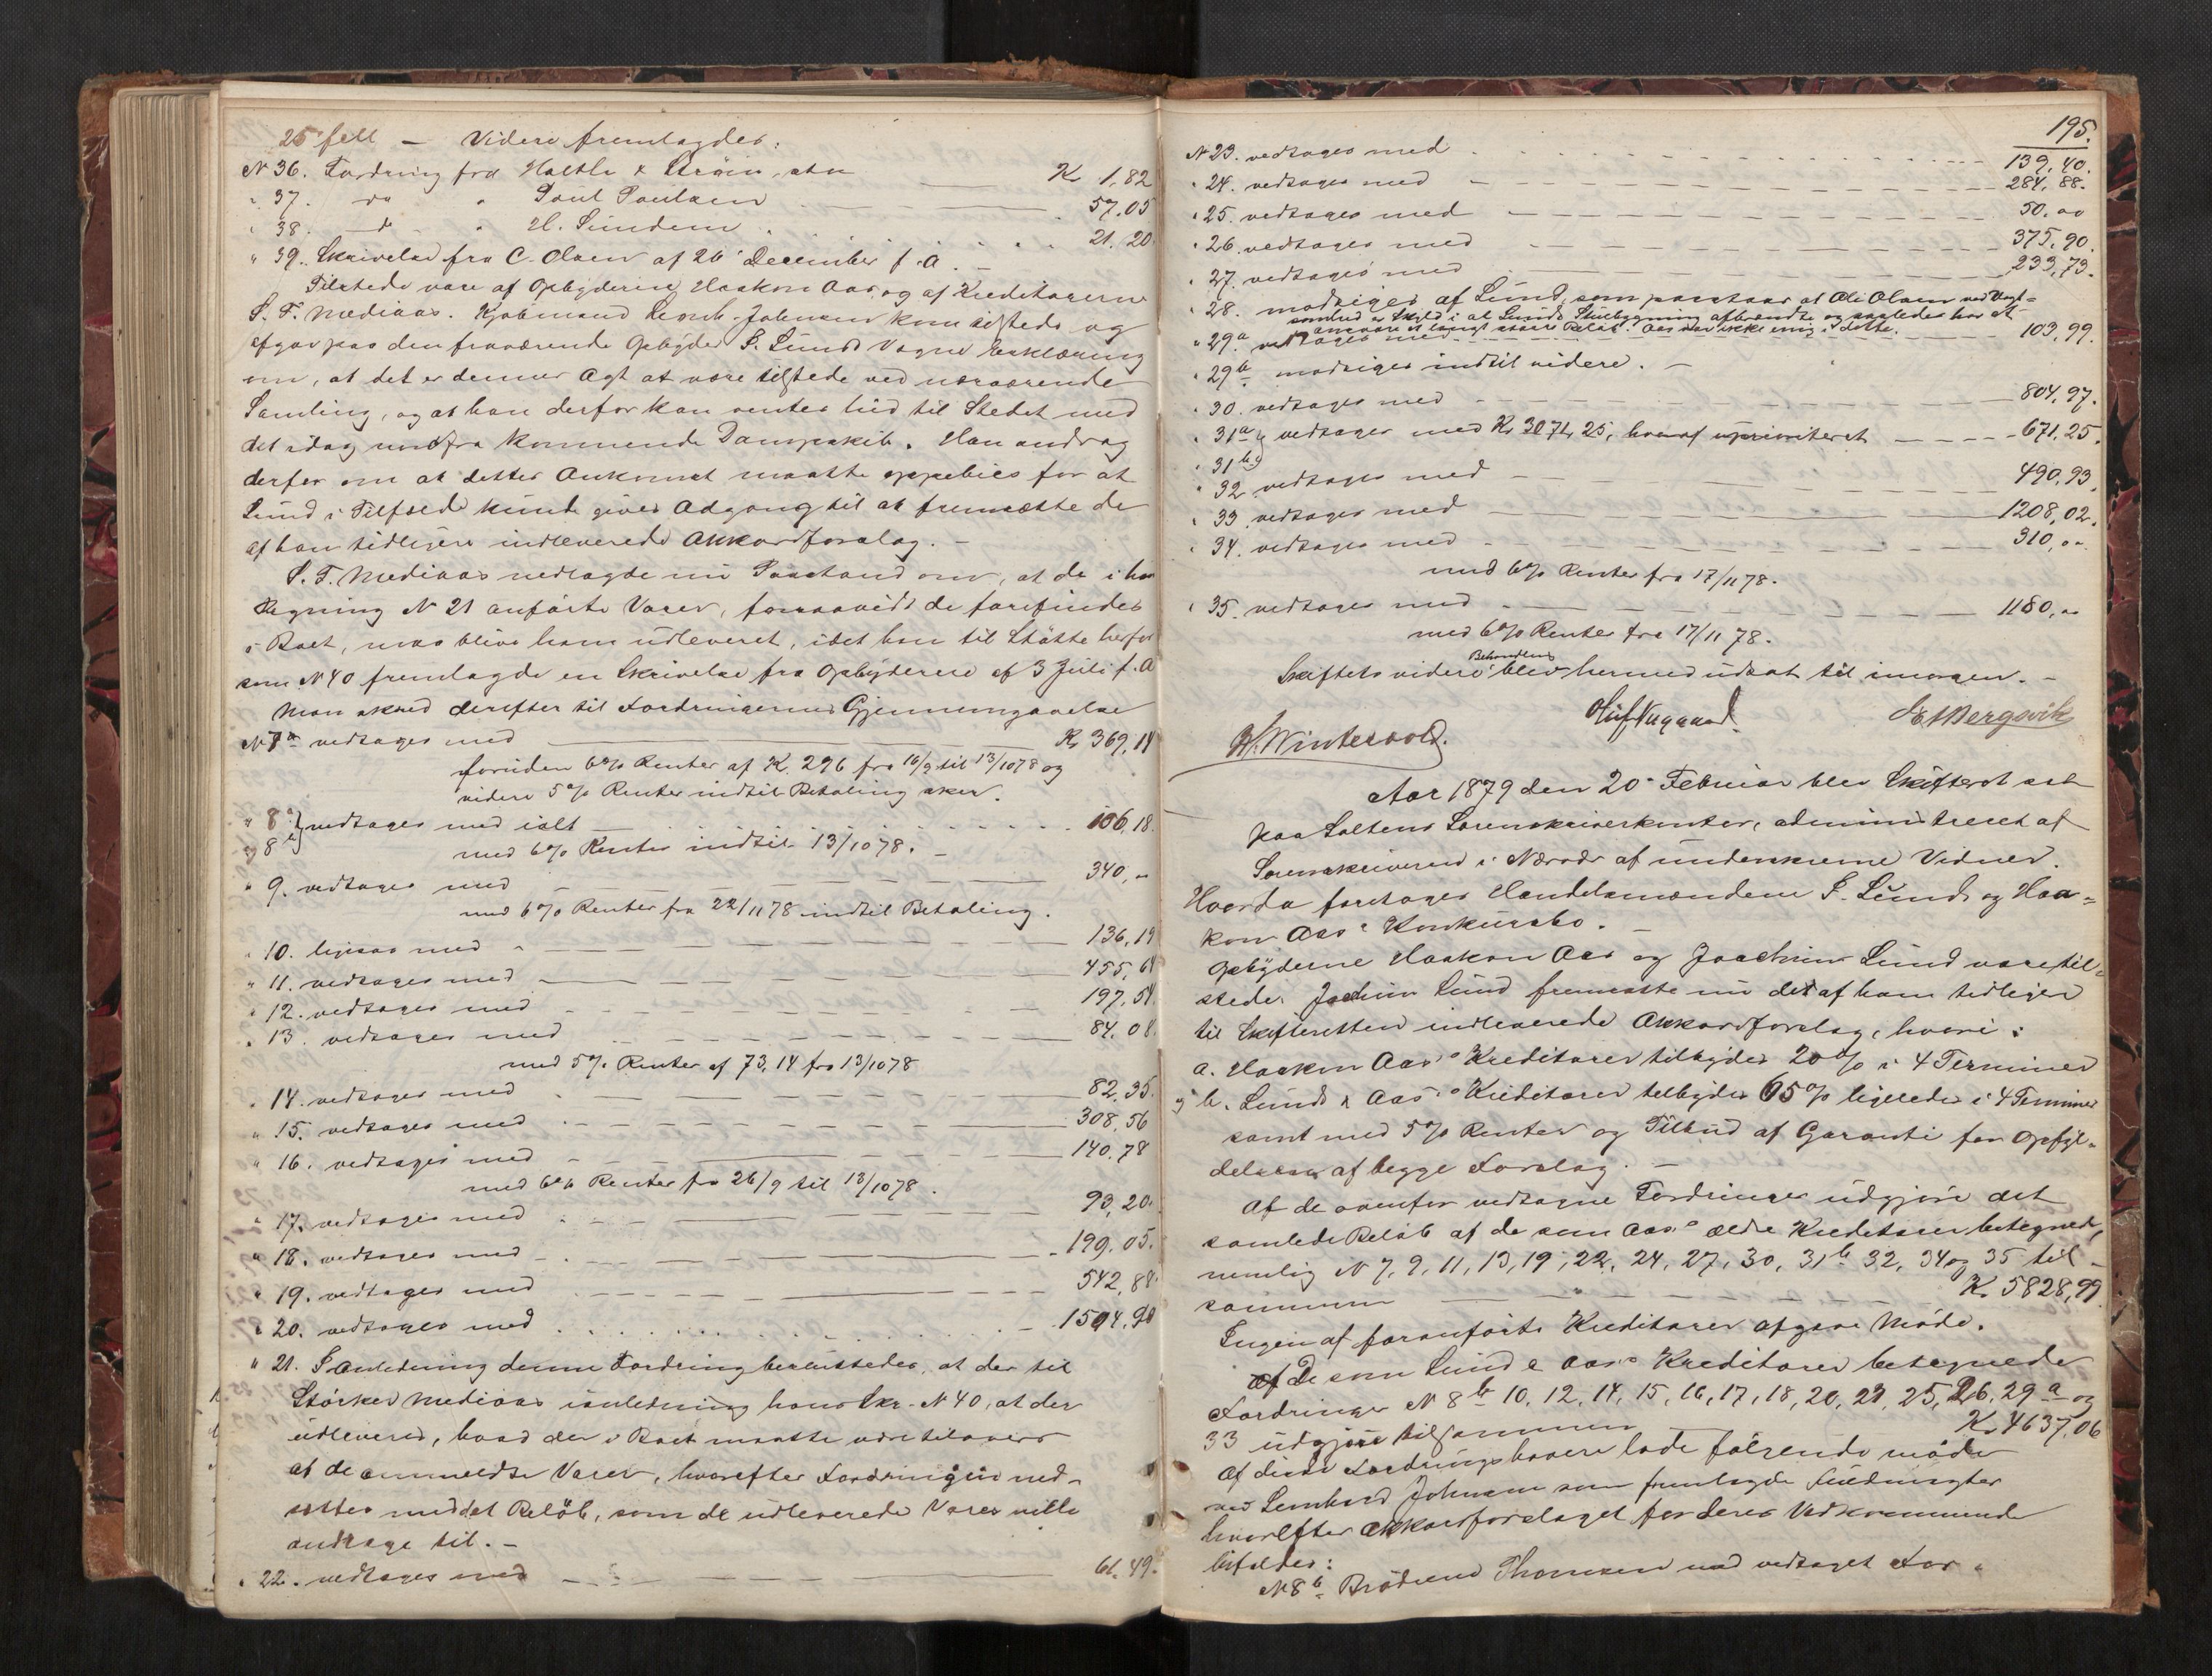 25 fell — Videre fremlagdes:
N 36. Fordring fra Holthe & Strøm, stor K 1,82
" 37. do " Poul Poulsen 57.05
" 38. d " H. Sundem 21.20
" 39. Skrivelse fra C. Olsen af 26 December f. A. —
Tilstede vare af Opbyderne Haakon Aas, og af Kreditorerne
S. F. Mediaas. Kjøbmand Lernh. Johnsen kom tilstede og
afgav paa den fraværende Opbyder J. Lunds Vegne Erklæring
om, at det er dennes Agt at være tilstede ved nærværende
Samling, og at han derfor kan ventes hid til Stedet med
det idag nordfra kommende Dampskib. Han androg
derfor om at dettes Ankomst maatte oppebies for at
Lund i Tilfælde kunde gives Adgang til at fremsætte de
af ham tidligere indleverede Akkordforslag. —
S. F. Mediaas nedlagde nu Paastand om, at de i hans
Regning N 21 anførte Varer, forsaavidt de forefindes
i Boet, maa blive ham udleveret, idet han til Støtte herfor
som N 40 fremlagde en Skrivelse fra Opbyderne af 3 Juli f. A
Man skred derefter til Fordringernes Gjennemgaaelse
N 7 a vedtages med K. 369,14
foruden 6% Renter af K. 296 fra 16/9 til 13/10 78 og
videre 5% Renter indtil Betaling sker.
" 8 a vedtages med ialt 106,18.
og 8 b med 6% Renter indtil 13/10 78. —
" 9. vedtages med 340,—
med 6% Renter fra 22/11 78 indtil Betaling.
" 10. ligesaa med 136,19
" 11. vedtages med 455,64
" 12. vedtages med 197.54.
" 13. vedtages med 84.08.
med 5% Renter af 73,14 fra 13/10 78
" 14. vedtages med 82,35.
" 15. vedtages med 308,56
" 16. vedtages med 140.78
med 6% Renter fra 26/9 til 13/10 78.
" 17. vedtages med 93,20.
" 18. vedtages med 199.05.
" 19. vedtages med 542,88.
" 20. vedtages med 1504.90
" 21. I Anledning denne Fordring besluttedes, at der til
Størker Mediaas ianledning hans Skr. N 40, at der
udleveres, hvad der i Boet maatte være tilovers
af de anmeldte Varer, hvorefter Fordringen ned-
sættes med det Beløb, som de udleverede Varer ville
andrage til. —
" 22. vedtages med 61.49.
195.
N 23. vedtages med 139,40.
" 24. vedtages med 284,88.
" 25. vedtages med 50,00
" 26. vedtages med 375,90.
" 27. vedtages med 233,73.
" 28. modsiges af Lund, som paastaar at Ole Olsen ved Uagt-
somhed er Skyld i at Lunds Skuebygning afbrændte og saaledes har at
ansvare et langt større Beløb. Aas var ikke enig i dette.
" 29 a vedtages med 103,99.
" 29 b modsiges indtil videre. —
" 30. vedtages med 804,97.
" 31 a og vedtages med K. 3071,25, hvoraf uprioriteret 671,25.
" 31 b
" 32 vedtages med 490,93.
" 33. vedtages med 1208,02.
" 34. vedtages med 310,00
med 6% Renter fra 17/11 78.
" 35. vedtages med 1180,00
med 6% Renter fra 17/11 78.
Skiftets videre Behandling blev hermed udsat til imorgen. —
Oluf Nygaard. Bergsvik
W. Wintervold.
Aar 1879 den 20 Februar blev Skifteret sat
paa Saltens Sorenskriverkontor, administreret af
Sorenskriveren i Nærvær af underskrevne Vidner.
Hvorda foretoges Handelsmændene J. Lunds og Haa-
kon Aas's Konkursbo. —
Opbyderne Haakon Aas og Joachim Lund vare til-
stede. Jochim Lund fremsatte nu det af ham tidligere
til Skifteretten indleverede Akkordforslag, hvori:
a. Haakon Aas's Kreditorer tilbydes 20% i 4 Terminer
og b. Lunds & Aas's Kreditorer tilbydes 65% ligeledes i 4 Terminer
samt med 5% Renter og Tilbud af Garanti for Opfyl-
delsen af begge Forslag. —
Af de ovenfor vedtagne Fordringer udgjøre det
samlede Beløb af de som Aas's ældre Kreditorer betegnede,
nemlig N 7, 9, 11, 13, 19, 22, 24, 27, 30, 31 b 32, 34 og 35 til-
sammen K. 5828,99.
Ingen af foranførte Kreditorer afgave Møde.
Af De som Lund & Aas's Kreditorer betegnede
Fordringer N 8 b 10, 12, 14, 15, 16, 17, 18, 20, 23, 25, 26, 29 a og
33 udgjøre tilsammen K. 4637,06
Af disse Fordringshavere lode følgende møde
ved Lernhard Johnsen som fremlagde Fuldmagter
hvorefter Akkordforslaget for deres Vedkommende
bifaldes:
N 8 b Brødrene Thomsen med vedtaget For-